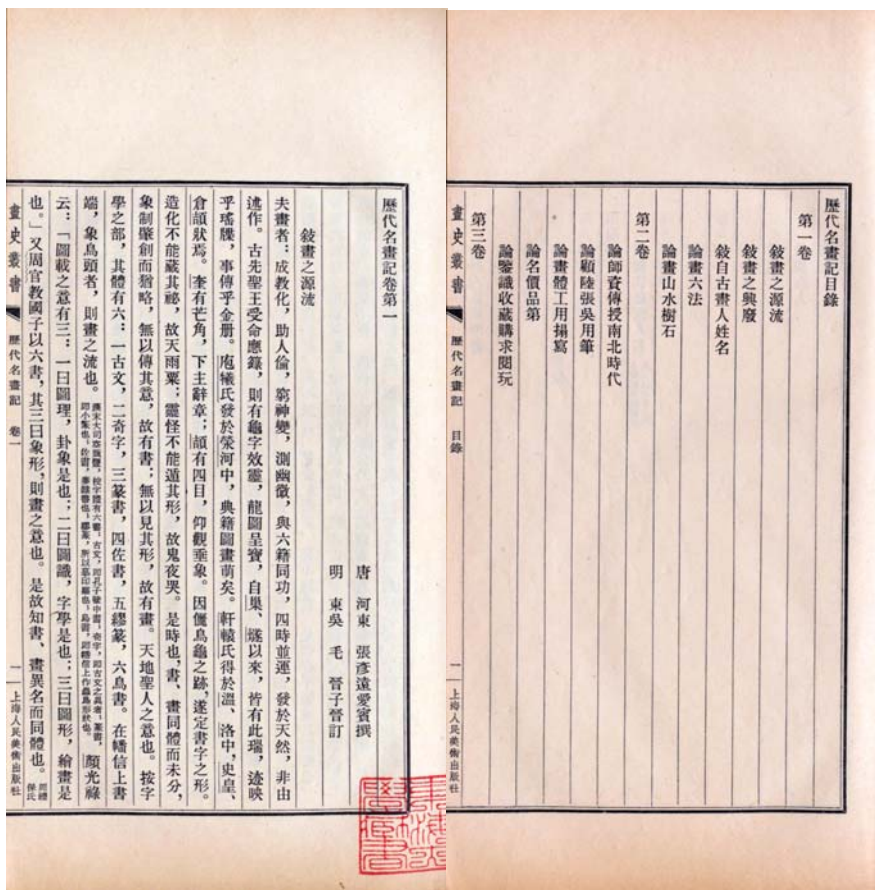 歷代名畫記目錄
第一卷
敍畫之源流
敍畫之興廢
敍自古畫人姓名
論畫六法
論畫山水樹石
第二卷
論師資傳授南北時代
論顧陸張吳用筆
論畫體工用搨寫
論名價品第
論鑒識收藏購求閱玩
第三卷
畫史叢書 歷代名畫記 目錄 一 上海人民美術出版社
歷代名畫記卷第一
唐 河東 張彥遠愛賓撰
明 東吳 毛 晉子晉訂
敍畫之源流
夫畫者：成教化，助人倫，窮神變，測幽微，與六籍同功，四時並運，發於天然，非由
述作。古先聖王受命應籙，則有龜字效靈，龍圖呈寶，自巢、燧以來，皆有此瑞，迹映
乎瑤牒，事傳乎金册。庖犧氏發於滎河中，典籍圖畫萌矣。軒轅氏得於溫、洛中，史皇、
倉頡狀焉。奎有芒角，下主辭章；頡有四目，仰觀垂象。因儷鳥龜之跡，遂定書字之形。
造化不能藏其祕，故天雨粟；靈怪不能遁其形，故鬼夜哭。是時也，書、畫同體而未分，
象制肇創而猶略，無以傳其意，故有書；無以見其形，故有畫。天地聖人之意也。按字
學之部，其體有六：一古文，二奇字，三篆書，四佐書，五繆篆，六鳥書。在幡信上書
端，象鳥頭者，則畫之流也。漢末大司空甄豐，校字體有六書，古文，即孔子壁中書；奇字，即古文之異者；篆書，即小篆也；佐書，秦隸書也；繆篆，所以摹印璽也；鳥書，即幡信上作蟲鳥形狀也。顏光祿
云：「圖載之意有三：一曰圖理，卦象是也；二曰圖識，字學是也；三曰圖形，繪畫是
也。」又周官教國子以六書，其三曰象形，則畫之意也。是故知書、畫異名而同體也。周禮保氏
畫史叢書 歷代名畫記 卷一 一 上海人民美術出版社